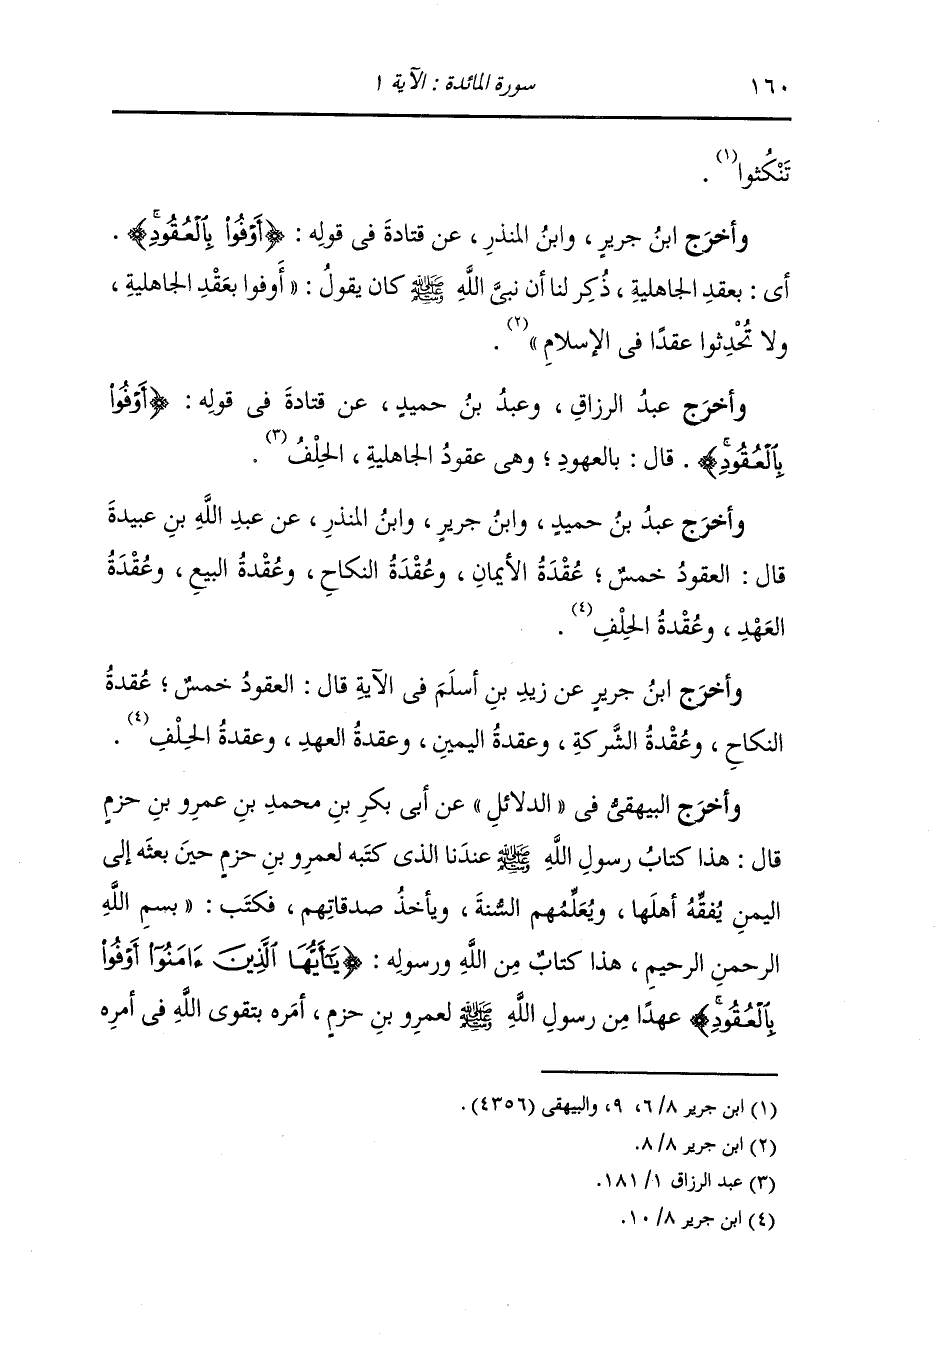 ١٦٠ سورة المائدة : الآية ١
تَنْكُثوا(١) .
وأخرَج ابنُ جريرٍ ، وابنُ المنذرِ ، عن قتادةَ فى قولِه : ﴿أَوْفُوا۟ بِٱلْعُقُودِۚ﴾ .
أى : بعقدِ الجاهليةِ ، ذُكِر لنا أن نبىَّ اللَّهِ ﷺ كان يقولُ : « أَوفوا بعَقْدِ الجاهليةِ ،
ولا تُحْدِثوا عقدًا فى الإسلامِ »(٢) .
وأخرَج عبدُ الرزاقِ ، وعبدُ بنُ حميدٍ ، عن قتادةَ فى قولِه : ﴿أَوْفُوا۟
بِٱلْعُقُودِۚ﴾ . قال : بالعهودِ ؛ وهى عقودُ الجاهليةِ ، الحِلْفُ(٣) .
وأخرَج عبدُ بنُ حميدٍ ، وابنُ جريرٍ ، وابنُ المنذرِ ، عن عبدِ اللَّهِ بنِ عبيدةَ
قال : العقودُ خمسٌ ؛ عُقْدَةُ الأيمانِ ، وعُقْدَةُ النكاحِ ، وعُقْدةُ البيعِ ، وعُقْدَةُ
العَهْدِ ، وعُقْدةُ الحِلْفِ(٤) .
وأخرَج ابنُ جريرٍ عن زيدِ بنِ أسلَمَ فى الآيةِ قال : العقودُ خمسٌ ؛ عُقدةُ
النكاحِ ، وعُقْدةُ الشَّركةِ ، وعقدةُ اليمينِ ، وعقدةُ العهدِ ، وعقدةُ الحِلْفِ(٤) .
وأخرَج البيهقىُّ فى « الدلائلِ » عن أبى بكرِ بنِ محمدِ بنِ عمرِو بنِ حزمٍ
قال : هذا كتابُ رسولِ اللَّهِ ﷺ عندَنا الذى كتَبه لعمرِو بنِ حزمٍ حينَ بعثَه إلى
اليمنِ يُفقِّهُ أهلَها ، ويُعَلِّمُهم السُّنةَ ، ويأخذُ صدقاتِهم ، فكتَب : « بسمِ اللَّهِ
الرحمنِ الرحيمِ ، هذا كتابٌ مِن اللَّهِ ورسولِه : ﴿يَـٰٓأَيُّهَا ٱلَّذِينَ ءَامَنُوٓا۟ أَوْفُوا۟
بِٱلْعُقُودِۚ﴾ عهدًا مِن رسولِ اللَّهِ ﷺ لعمرِو بنِ حزمٍ ، أمَره بتقوى اللَّهِ فى أمرِه
(١) ابن جرير ٨/ ٦، ٩، والبيهقى (٤٣٥٦).
(٢) ابن جرير ٨/ ٨.
(٣) عبد الرزاق ١/ ١٨١.
(٤) ابن جرير ٨/ ١٠.